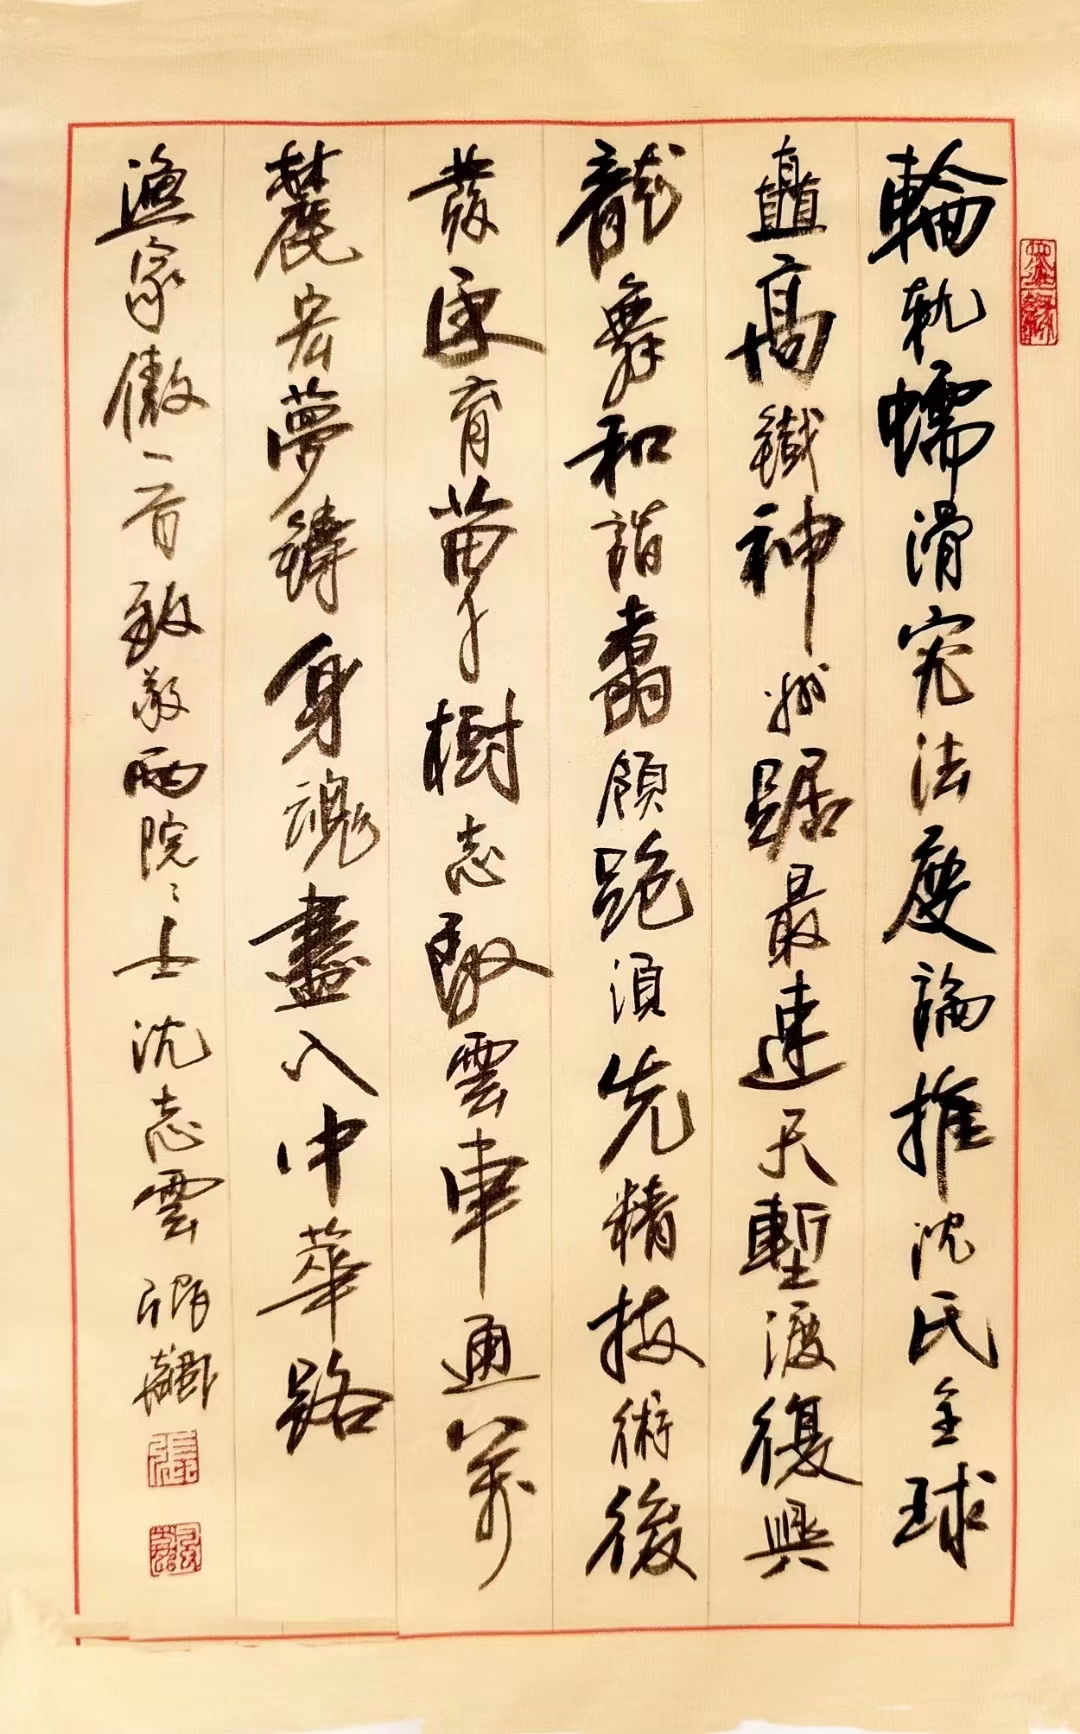 輪軌蠕滑究法度論推沈氏全球
矗高鐵神州踞最速天塹渡復興
龍舞和諧翥願跑須先精技術後
發逐育苗才樹志馭雲車通萬
麓宏夢鑄身魂盡入中華路
漁家傲一首致敬兩院院士沈志雲